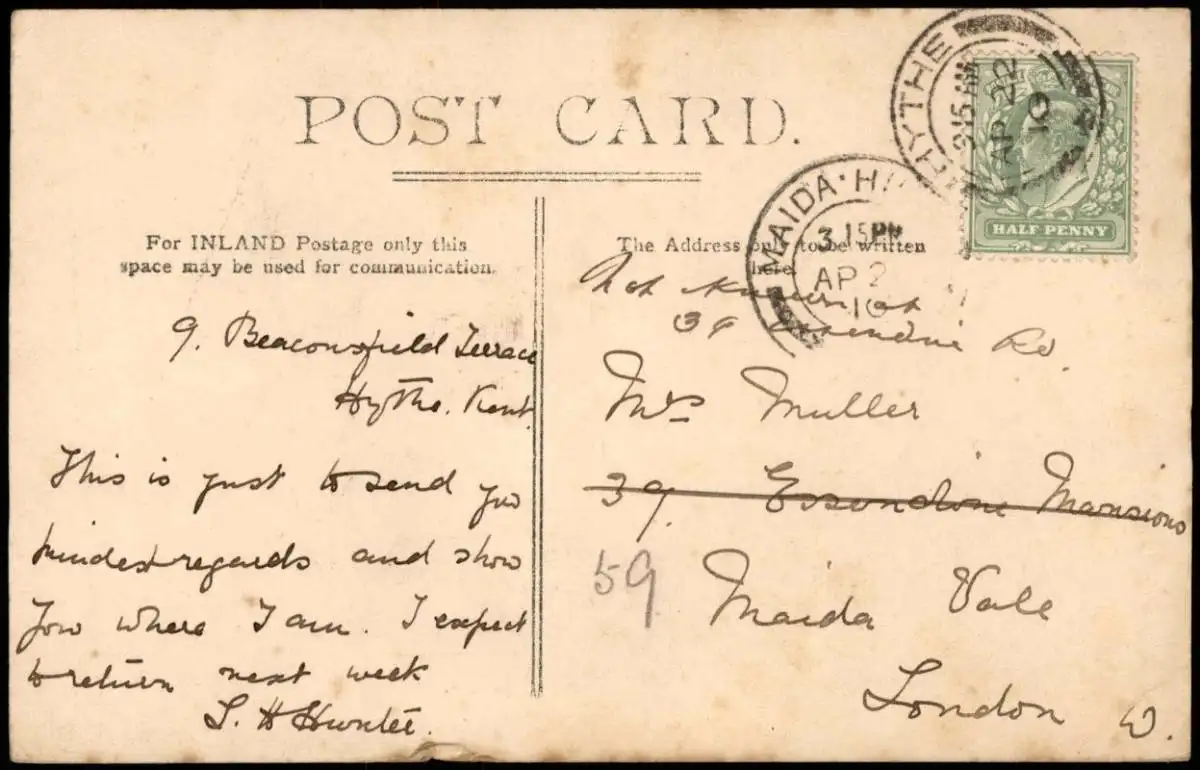 POST CARD.
For INLAND Postage only this
space may be used for communication.
The Address only to be written
here.
HYTHE
9 15 AM
AP 22
10
HALF PENNY
MAIDA·H
3 15 PM
AP 2
10
9. Beaconsfield Terrace
Hythe. Kent.
This is just to send you
kindest regards and show
you where I am. I expect
to return next week
L. H Hunter.
Not known at
39 Essendine Rd.
Mrs Muller
39. Essendine Mansions
59
Maida Vale
London W.